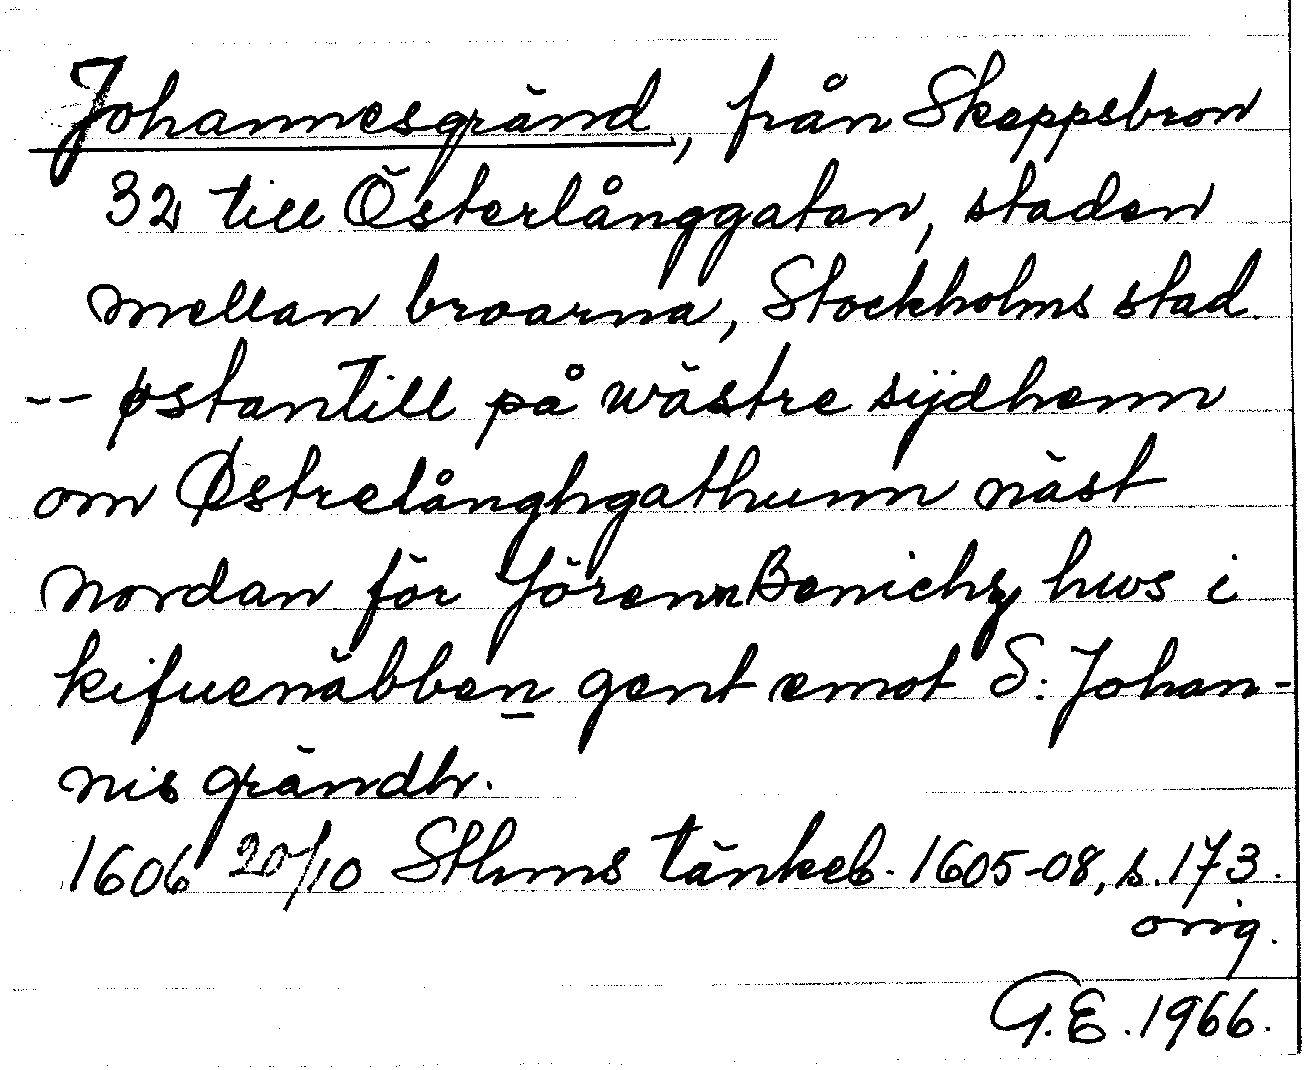 Johannesgränd, från Skeppsbron
32 till Österlånggatan, staden
mellan broarna, Stockholms stad.
-- østantill på wästre sijdhenn
om Østrelånghgathunn näst
nordan för Jörenn Benichz hws i
kifuenäbben gent emot S: Johan-
nis grändh.
1606 20/10 Sthms tänkeb. 1605-08, s. 173.
orig.
G.E. 1966.